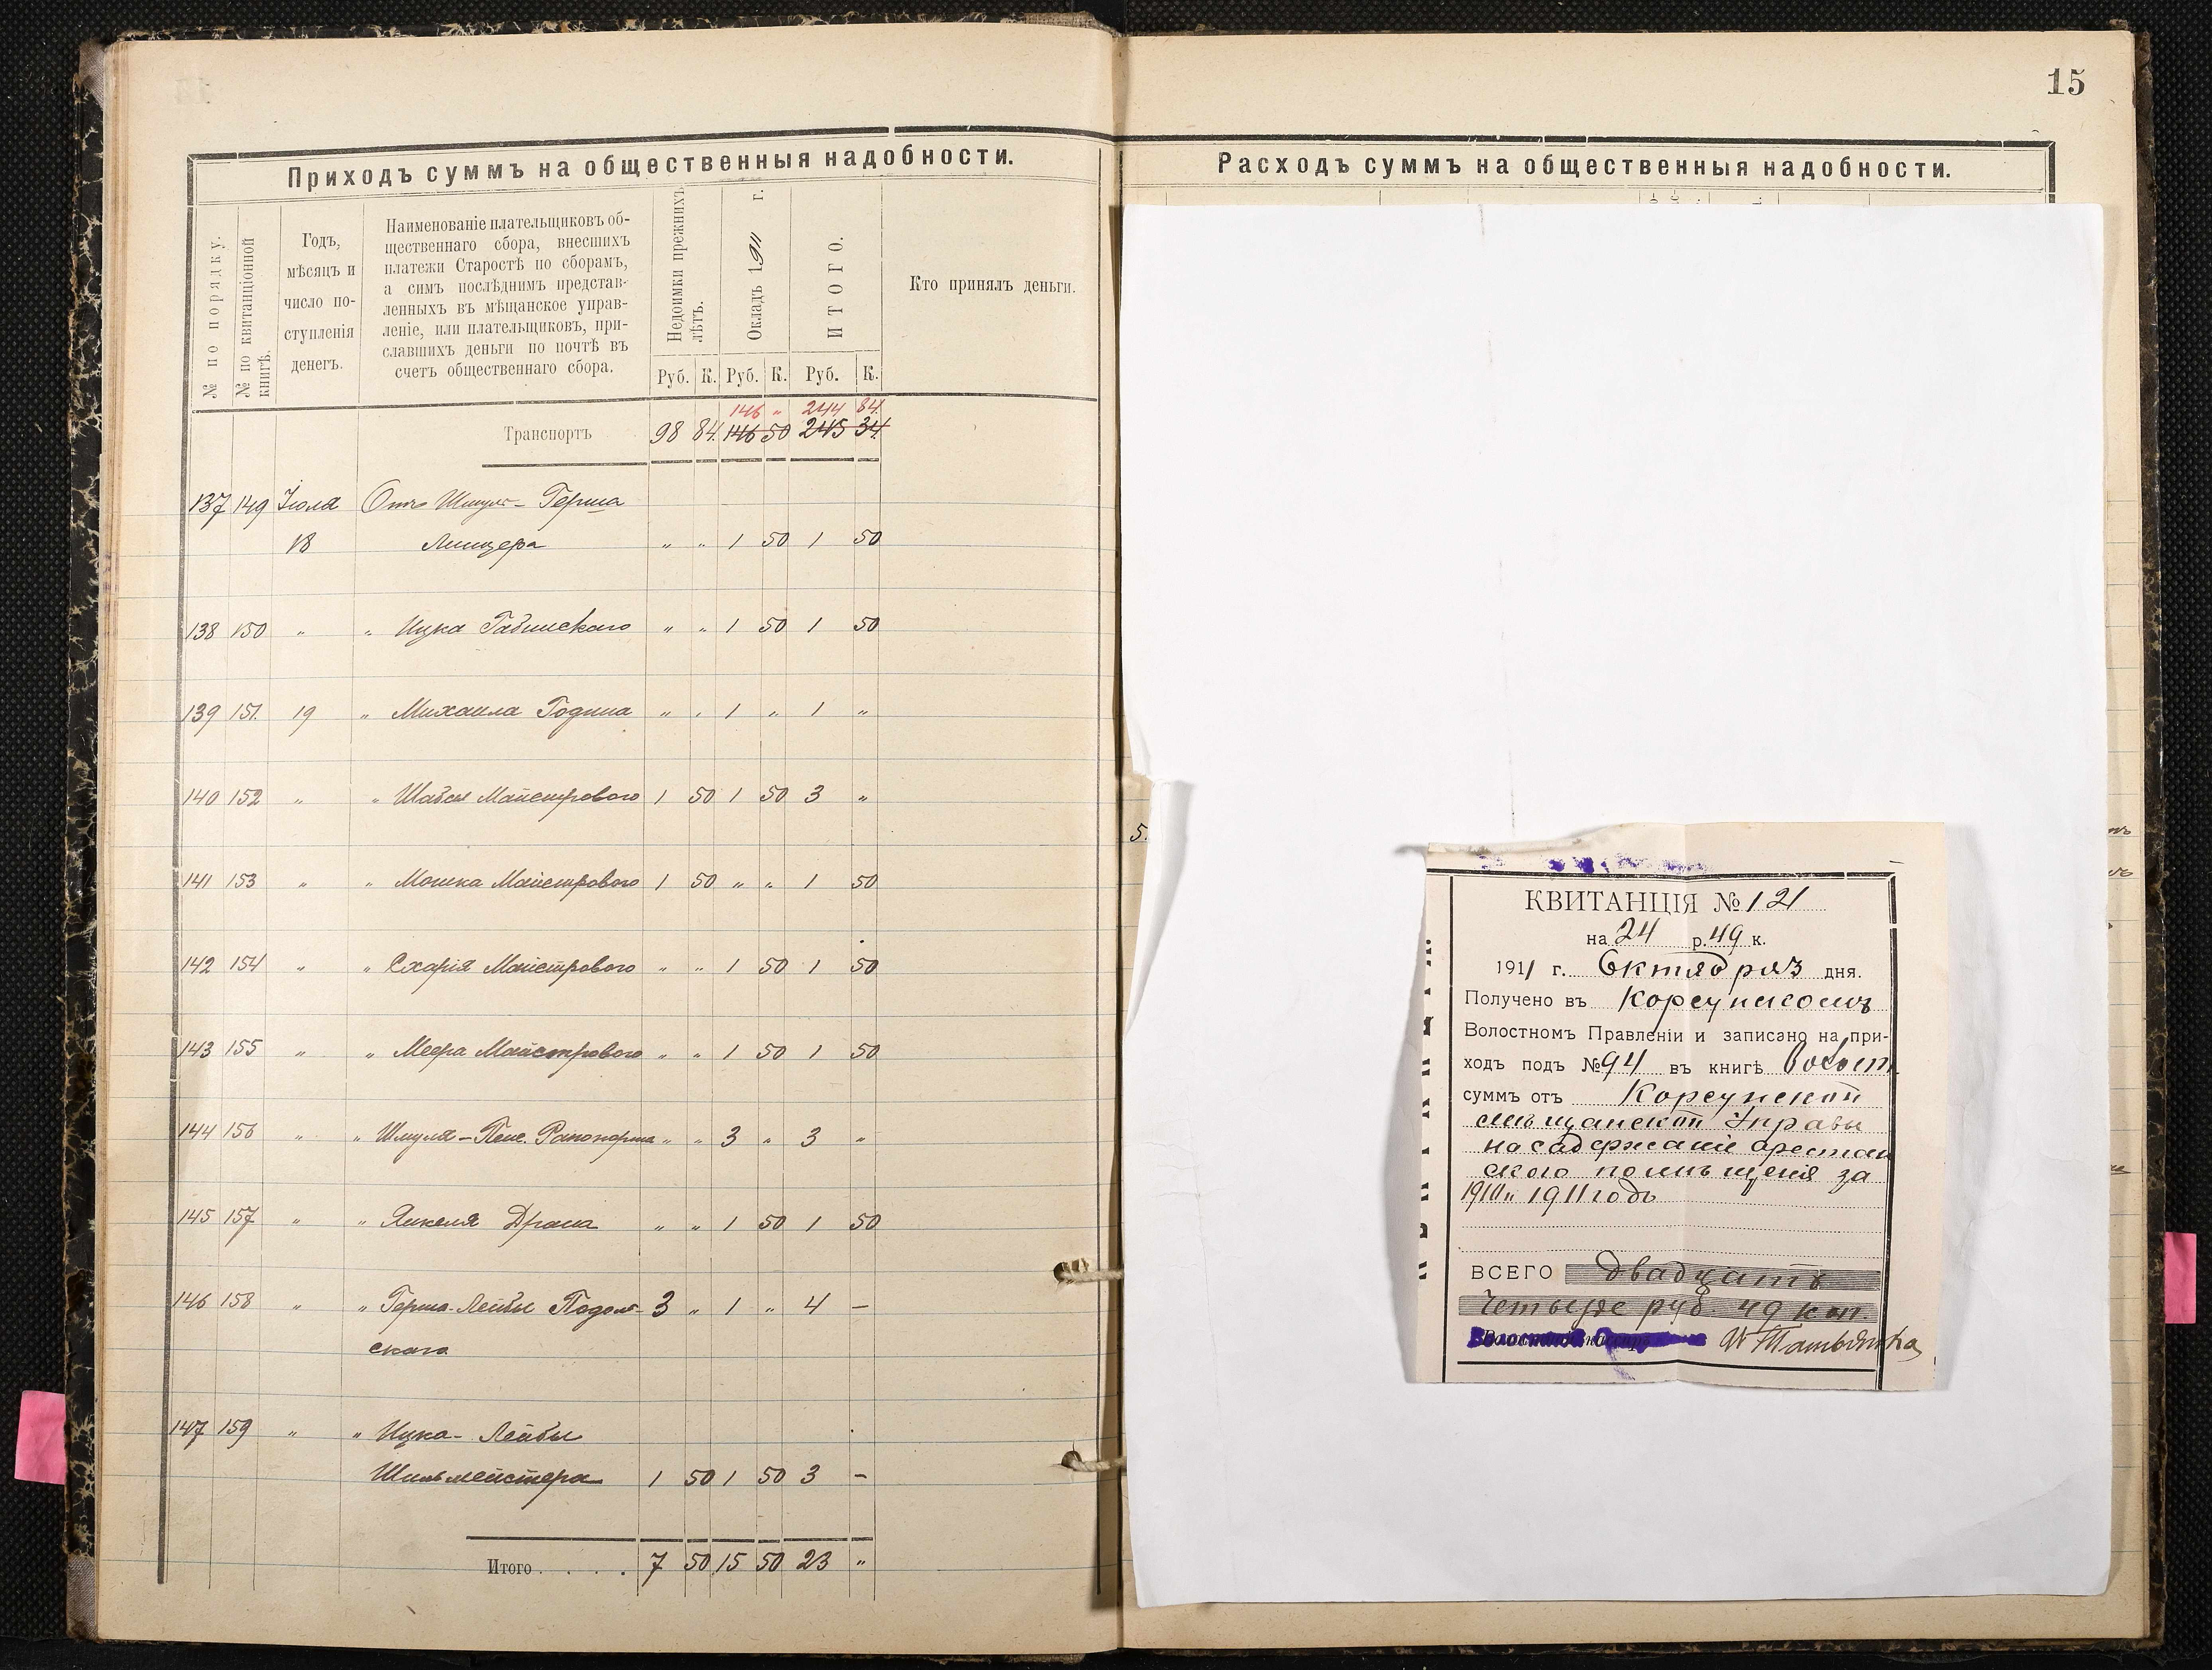 15
Приходъ суммъ на общественныя надобности.
№ по порядку.
№ по квитанціонной
книгѣ.
Годъ,
мѣсяцъ и
число по-
ступленія
денегъ.
Наименованіе плательщиковъ об-
щественнаго сбора, внесшихъ
платежи Старостѣ по сборамъ,
а симъ послѣднимъ представ-
ленныхъ въ мѣщанское управ-
леніе, или плательщиковъ, при-
славшихъ деньги по почтѣ въ
счетъ общественнаго сбора.
Недоимки прежнихъ
лѣтъ.
Окладъ 1911 г.
ИТОГО.
Кто принялъ деньги.
Руб. К. Руб. К. Руб. К.
146 „ 244 84.
Транспортъ 98 84. 146 50 245 34.
137 149 Іюля Отъ Шмуля- Герша
18 Лищера „ „ 1 50 1 50
138 150 „ „ Ицка Габинскаго „ „ 1 50 1 50
139 151. 19 „ Михаила Година „ „ 1 „ 1 „
140 152 „ „ Шабся Майстрового 1 50 1 50 3 „
141 153 „ „ Мошка Майстрового 1 50 „ „ 1 50
142 154 „ „ Схарія Майстрового „ „ 1 50 1 50
143 155 „ „ Меера Майстрового „ „ 1 50 1 50
144 156 „ „ Шмуля- Рапопорта „ „ 3 „ 3 „
145 157 „ „ Янкеля Драча „ „ 1 50 1 50
146 158 „ „ Герша-Лейбы Подоль- 3 „ 1 „ 4 —
скаго
147 159 „ „ Ицка- Лейбы
Шильмейстера 1 50 1 50 3 —
Итого . . . . 7 50 15 50 23 „
Расходъ суммъ на общественныя надобности.
5.
КВИТАНЦІЯ № 121
на 24 р. 49 к.
1911 г. Октября 3 дня.
Получено въ Корсунскомъ
Волостномъ Правленіи и записано на при-
ходъ подъ № 94 въ книгѣ волост.
суммъ отъ Корсунской
мѣщанской Управы
на садержаніе арестан
скаго помѣщенія за
1910 и 1911 годъ
ВСЕГО двадцать
четыре руб. 49 коп.